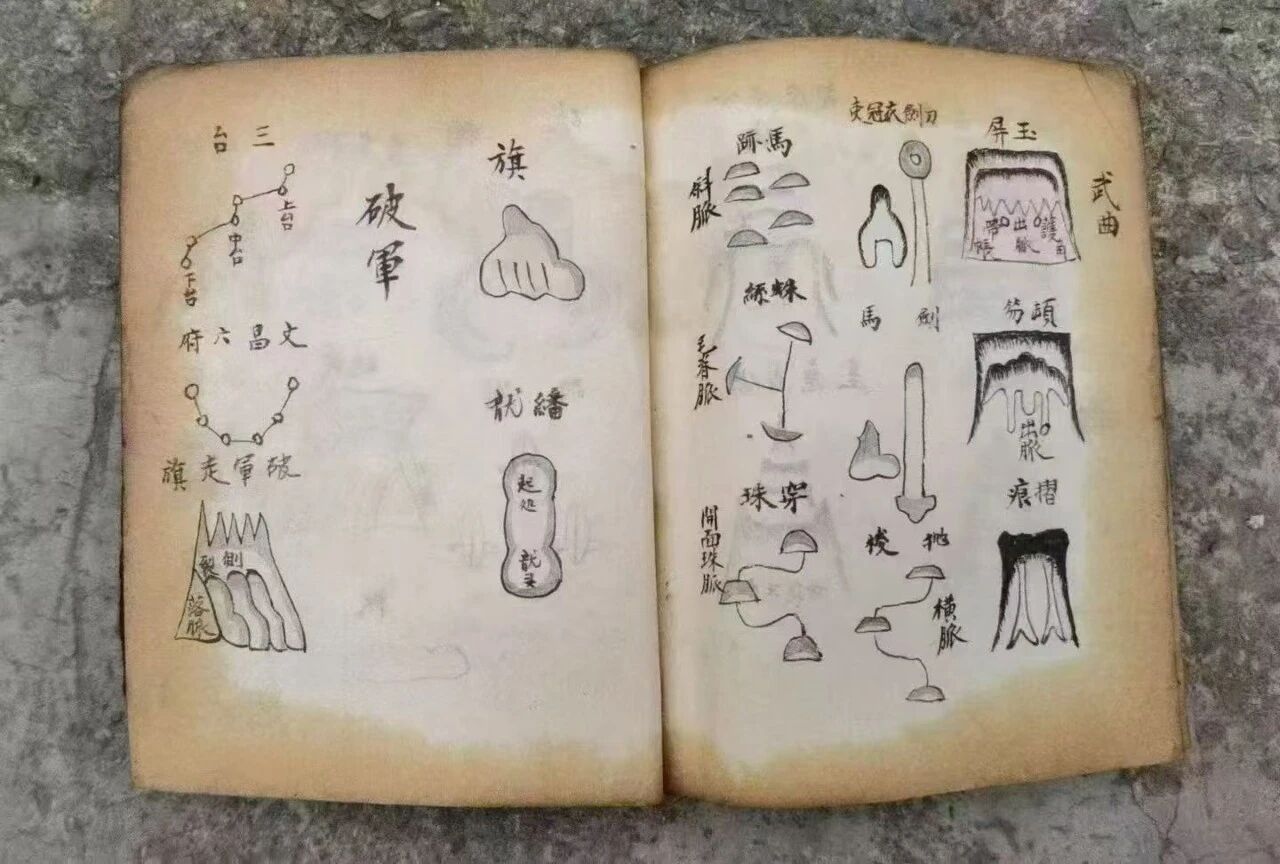 武曲
玉屏
護田
出脈
帶
帳
頭笏
出脈
摺痕
冠衣劍刀
劍
馬
拋
橫脈
馬跡
斜脈
蛛絲
毛脊脈
穿珠
開面珠脈
旗
繙龍
起処
破軍
三台
上台
中台
下台
文昌六府
破軍走旗
劍
落脈